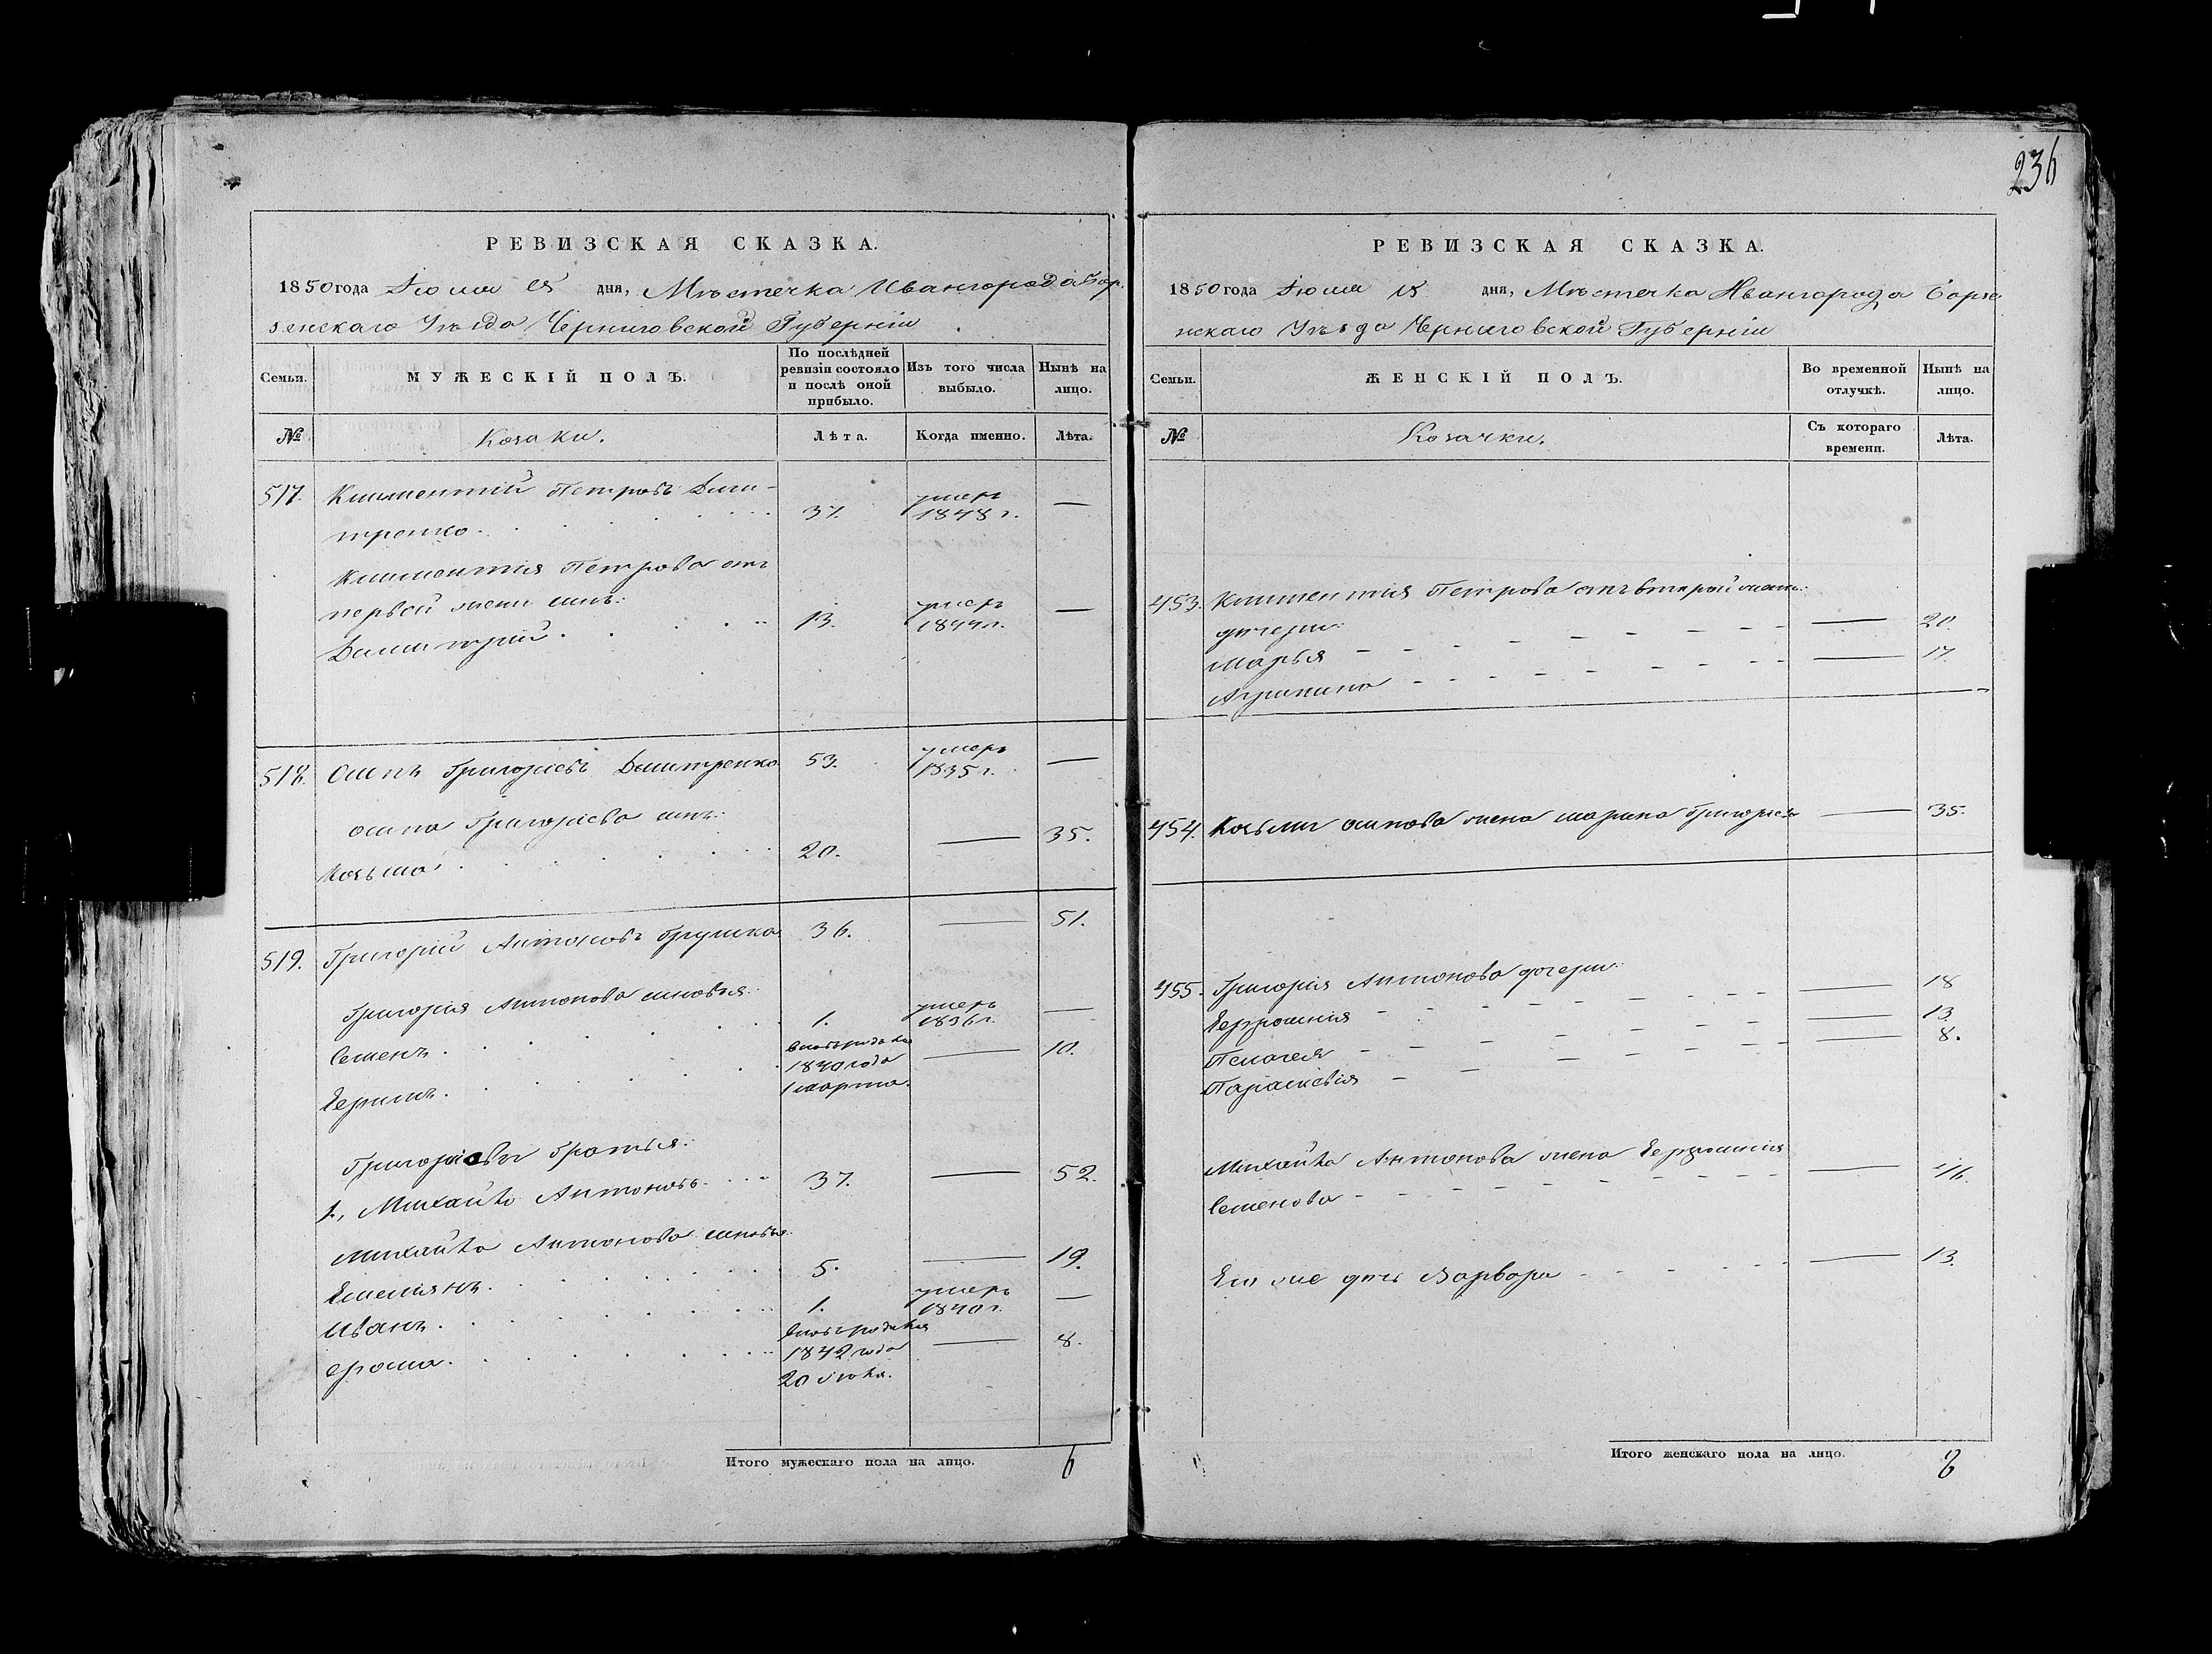 РЕВИЗСКАЯ СКАЗКА.
1850 года Іюля 15 дня, Мѣстечка Ивангорода Бор-
зенскаго Уѣзда Черниговской Губерніи
Семьи.
МУЖЕСКІЙ ПОЛЪ.
По послѣдней ревизіи состояло и послѣ оной прибыло.
Изъ того числа выбыло.
Нынѣ на лицо.
№
Козаки.
Лѣта.
Когда именно.
Лѣта.
517. Климентій Петровъ Дми-
тренко. 37. умеръ 1848 г. —
Климентія Петрова отъ
первой жены сынъ:
Димитрій. 13. умеръ 1844 г. —
518. Осипъ Григорьевъ Дмитренко 53. умеръ 1835 г. —
Осипа Григорьева сынъ:
Козьма. 20. — 35.
519. Григорій Антоновъ 36. — 51.
Григорія Антонова сыновья:
Семенъ. 1. умеръ 1836 г. —
вновь рожден 1840 года 1 марта. — 10.
Григорьевы братья:
1, Михайло Антоновъ. 37. — 52.
Михайла Антонова сыновья:
Емельянъ. 5. — 19.
Иванъ. 1. умеръ 1840 г. —
Ѳома. вновь рожден 1842 года 20 Іюля. — 8.
Итого мужескаго пола на лицо. 6
236
РЕВИЗСКАЯ СКАЗКА.
1850 года Іюля 15 дня, Мѣстечка Ивангорода Борзе-
нскаго Уѣзда Черниговской Губерніи
Семьи.
ЖЕНСКІЙ ПОЛЪ.
Во временной отлучкѣ.
Нынѣ на лицо.
№
Козачки.
Съ котораго времени.
Лѣта.
453. Климентія Петрова отъ второй жены
дочери:
Марья — 20.
Агрипина — 17.
454. Козьмы Осипова жена Марина Григорьева — 35.
455. Григорія Антонова дочери:
Евфросинія — 18
Пелагея — 13
Параскевія — 8.
Михайла Антонова жена Евфросинія
Семенова — 46.
Его же дочь Варвара — 13.
Итого женскаго пола на лицо. 8